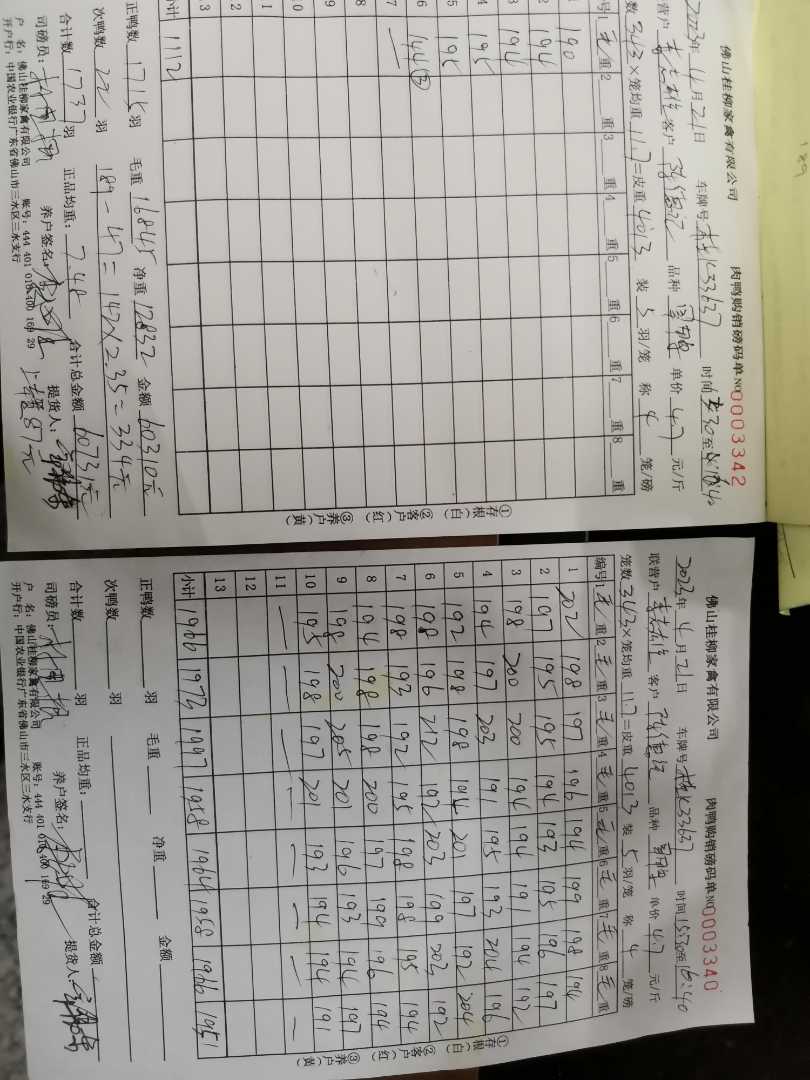 189
佛山桂柳家禽有限公司 肉鸭购销磅码单 NO 0003342
2023年 4月21日 车牌号 K33637 时间
营户 客户 品种 单价 4.7 元/斤
数 343 ×笼均重 11.7 =皮重 4013 装 5 羽/笼 称 4 笼/磅
编号 1 毛 重 2 重 3 重 4 重 5 重 6 重 7 重 8 重
190
2 194
3 194
4 195
5 195
6 144③
7 —
8
9
10
11
12
13
小计 1112
正鸭数 1715 羽 毛重 16845 净重 12832 金额 60310元
次鸭数 22 羽 189-47=142×2.35=334元
合计数 1737 羽 正品均重: 7.48 合计总金额 60731元
司磅员: 养户签名: 提货人:
户 名: 佛山桂柳家禽有限公司 账号: 444 401 010 400 169 29
87元
开户行: 中国农业银行广东省佛山市三水区三水支行
①存根(白) ②客户(红) ③养户(黄)
佛山桂柳家禽有限公司 肉鸭购销磅码单 NO 0003340
2023年 4月21日 车牌号 K33637 时间
联营户 客户 品种 单价 4.7 元/斤
笼数 343 ×笼均重 11.7 =皮重 4013 装 5 羽/笼 称 4 笼/磅
编号 1 毛 重 2 毛 重 3 毛 重 4 毛 重 5 毛 重 6 毛 重 7 毛 重 8 毛 重
1 202 198 197 196 194 199 198 194
2 197 195 195 194 193 195 196 197
3 198 200 200 194 194 191 194 192
4 194 197 203 191 195 193 204 196
5 192 198 198 194 201 197 192 204
6 198 196 212 192 203 199 203 192
7 198 193 192 195 198 198 195 194
8 194 198 198 200 197 199 196 194
9 198 200 205 201 196 193 194 197
10 195 198 197 201 193 194 194 191
11 — — — — — — — —
12
13
小计 1966 1973 1997 1958 1964 1958 1966 1951
正鸭数 羽 毛重 净重 金额
次鸭数 羽
合计数 羽 正品均重: 合计总金额
司磅员: 养户签名: 提货人:
户 名: 佛山桂柳家禽有限公司 账号: 444 401 010 400 169 29
开户行: 中国农业银行广东省佛山市三水区三水支行
①存根(白) ②客户(红) ③养户(黄)